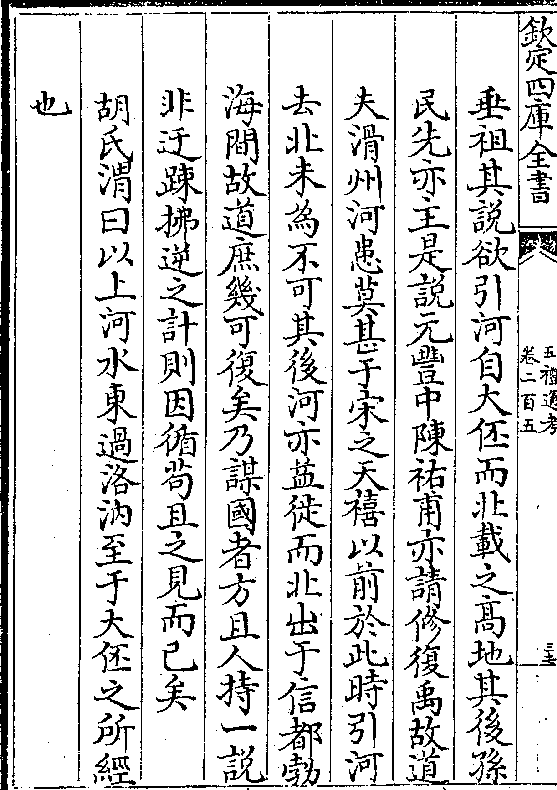 欽定四庫全書
五禮通考
卷二百五
垂祖其說欲引河自大伾而北載之髙地其後孫
民先亦主是說元豐中陳祐甫亦請修復禹故道
夫滑州河患莫甚于宋之天禧以前於此時引河
去北未為不可其後河亦益徙而北出于信都勃
海間故道庶幾可復矣乃謀國者方且人持一說
非迂踈拂逆之計則因循苟且之見而已矣
胡氏渭曰以上河水東過洛汭至于大伾之所經
也